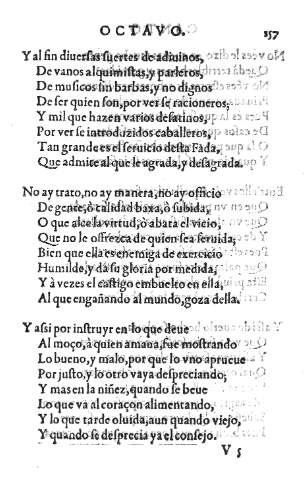 OCTAVO. 157
Y al fin diuersas suertes de adiuinos,
De vanos alquimistas, y parleros,
De musicos sin barbas, y no dignos
De ser quien son, por ver se racioneros;
Y mil que hazen varios desatinos,
Por ver se introduzidos caualleros,
Tan grande es el seruicio desta Fada,
Que admite al que le agrada, y desagrada.
No ay trato, no ay manera, no ay officio
De gente, ò calidad baxa, ò subida,
O que alce la virtud, ò abata el vicio,
Que no le ofrezca de quien sea seruida;
Bien que ella es enemiga de exercicio
Humilde, y da su gloria por medida,
Y à vezes el castigo embuelto en ella,
Al que engañando al mundo, goza della.
Y assi por instruyr en lo que deue
Al moço, à quien amaua, fue mostrando
Lo bueno, y malo, por que lo vno aprueue
Por justo, y lo otro vaya despreciando;
Y mas en la niñez, quando se beue
Lo que va al coraçon alimentando,
Y lo que tarde oluida, aun quando viejo,
Y quando se desprecia ya el consejo.
V 5